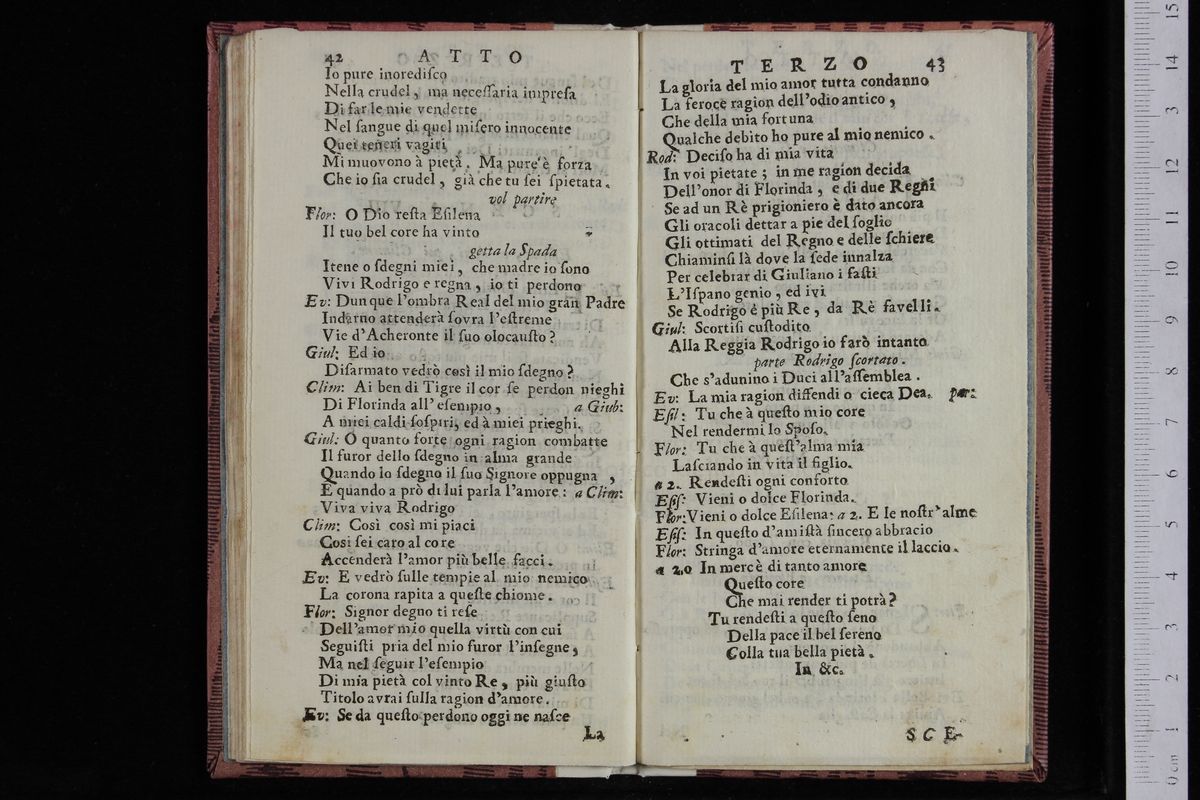 42 ATTO
Io pure inorediſco
Nella crudel, ma neceſſaria impreſa
Di far le mie vendette
Nel ſangue di quel miſero innocente
Quei teneri vagiti
Mi muovono à pietà. Ma pure è forza
Che io ſia crudel, già che tu ſei ſpietata.
vol partire
Flor: O Dio reſta Eſilena
Il tuo bel core ha vinto
getta la Spada
Itene o ſdegni miei, che madre io ſono
Vivi Rodrigo e regna, io ti perdono
Ev: Dunque l'ombra Real del mio gran Padre
Indarno attenderà ſovra l'eſtreme
Vie d'Acheronte il ſuo olocauſto?
Giul: Ed io
Diſarmato vedrò così il mio ſdegno?
Clim: Ai ben di Tigre il cor ſe perdon nieghi
Di Florinda all' eſempio, a Giub:
A miei caldi ſoſpiri, ed à miei prieghi.
Giul: O quanto forte ogni ragion combatte
Il furor dello ſdegno in alma grande
Quando lo ſdegno il ſuo Signore oppugna,
E quando a prò di lui parla l'amore: a Clim:
Viva viva Rodrigo
Clim: Così così mi piaci
Così ſei caro al core
Accenderà l'amor più belle faci.
Ev: E vedrò ſulle tempie al mio nemico
La corona rapita a queſte chiome.
Flor: Signor degno ti reſe
Dell'amor mio quella virtù con cui
Seguiſti pria del mio furor l'inſegne,
Ma nel ſeguir l'eſempio
Di mia pietà col vinto Re, più giuſto
Titolo avrai ſulla ragion d'amore.
Ev: Se da queſto perdono oggi ne naſce
La
TERZO 43
La gloria del mio amor tutta condanno
La feroce ragion dell'odio antico,
Che della mia fortuna
Qualche debito ho pure al mio nemico.
Rod: Deciſo ha di mia vita
In voi pietate; in me ragion decida
Dell'onor di Florinda, e di due Regni
Se ad un Rè prigioniero è dato ancora
Gli oracoli dettar a pie del ſoglio
Gli ottimati del Regno e delle ſchiere
Chiaminſi là dove la ſede innalza
Per celebrar di Giuliano i faſti
L'Iſpano genio, ed ivi
Se Rodrigo è più Re, da Rè favelli.
Giul: Scortiſi cuſtodito
Alla Reggia Rodrigo io farò intanto
parte Rodrigo ſcortato.
Che s'adunino i Duci all'aſſemblea.
Ev: La mia ragion diffendi o cieca Dea. par:
Eſil: Tu che à queſto mio core
Nel rendermi lo Spoſo.
Flor: Tu che à queſt'alma mia
Laſciando in vita il figlio.
a 2. Rendeſti ogni conforto
Eſiſ: Vieni o dolce Florinda.
Flor: Vieni o dolce Eſilena: a 2. E le noſtr'alme
Eſiſ: In queſto d'amiſtà ſincero abbracio
Flor: Stringa d'amore eternamente il laccio.
a 2.o In mercè di tanto amore
Queſto core
Che mai render ti potrà?
Tu rendeſti a queſto ſeno
Della pace il bel ſereno
Colla tua bella pietà.
In &c.
SCE-